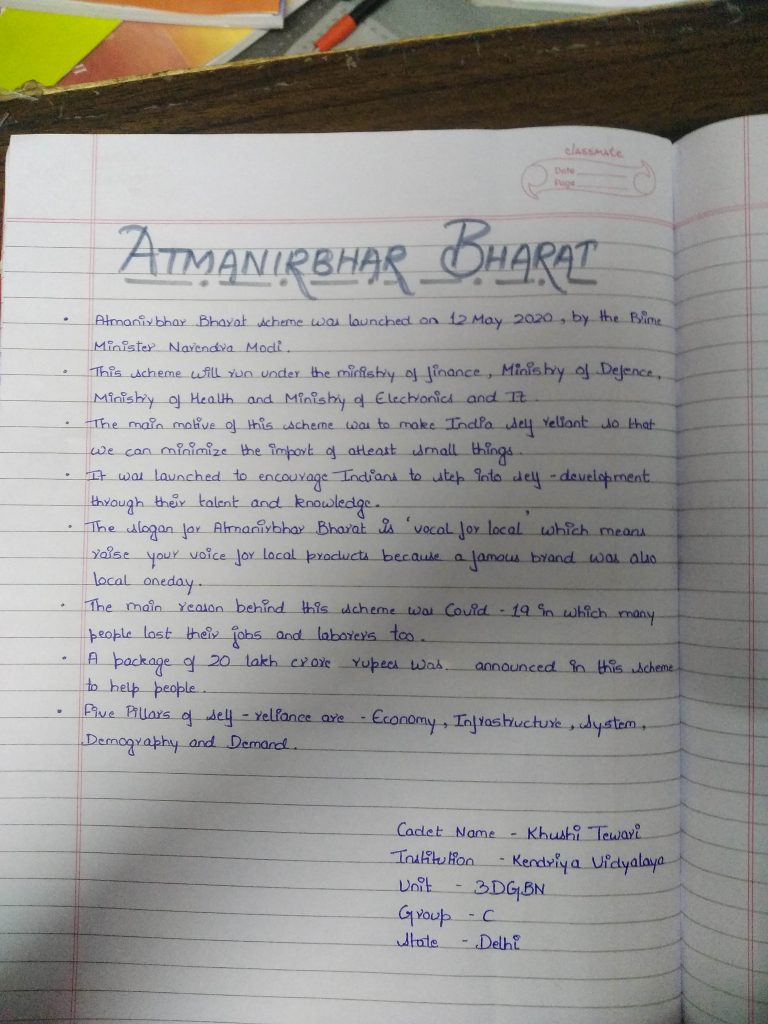 classmate
Date
Page
ATMANIRBHAR BHARAT
• Atmanirbhar Bharat scheme was launched on 12 May 2020, by the Prime
Minister Narendra Modi.
• This scheme will run under the ministry of finance, Ministry of Defence,
Ministry of Health and Ministry of Electronics and It.
• The main motive of this scheme was to make India self reliant so that
we can minimize the import of atleast small things.
• It was launched to encourage Indians to step into self-development
through their talent and knowledge.
• The slogan for Atmanirbhar Bharat is 'vocal for local' which means
raise your voice for local products because a famous brand was also
local oneday.
• The main reason behind this scheme was Covid-19 in which many
people lost their jobs and laborers too.
• A package of 20 lakh crore rupees was. announced in this scheme
to help people.
• Five Pillars of self-reliance are - Economy, Infrastructure, System,
Demography and Demand.
Cadet Name - Khushi Tewari
Institution - Kendriya Vidyalaya
Unit - 3DGBN
Group - C
State - Delhi